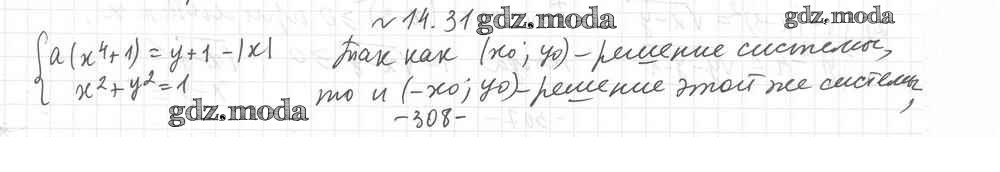 ~14.31 gdz.moda gdz.moda
a(x⁴+1) = y+1-|x| Так как (x0; y0) – решение системы,
x²+y²=1 то и (-x0; y0) – решение этой же системы,
gdz.moda
-308-